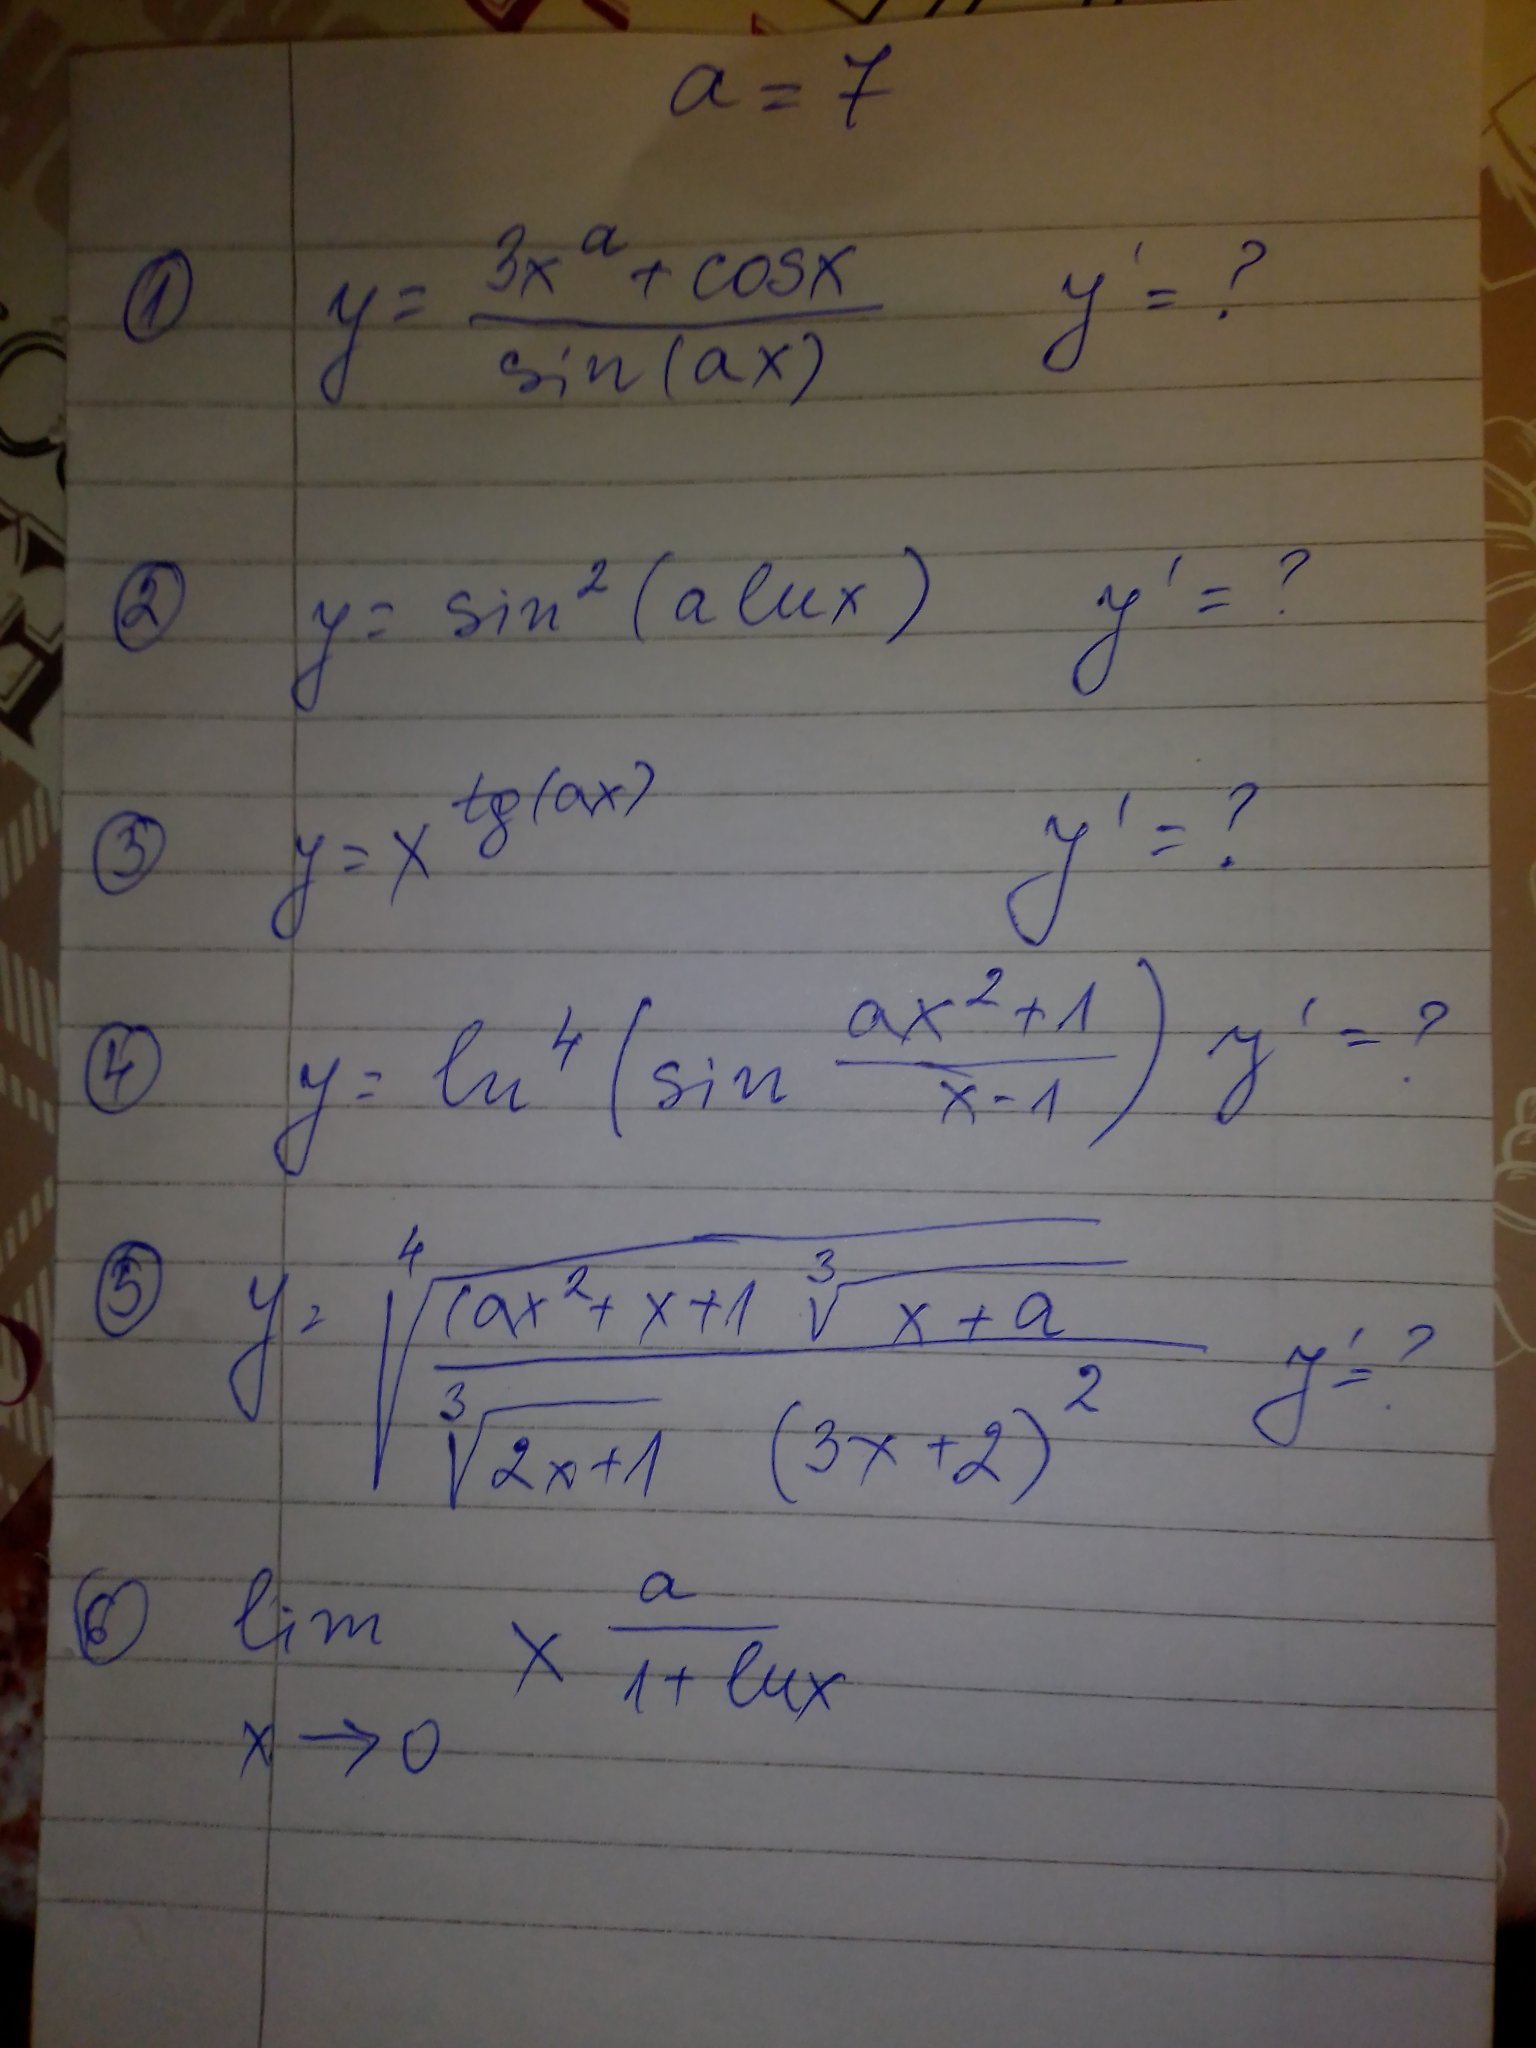 a = 7
① y = (3x^a + cosx) / (sin(ax)) y' = ?
② y = sin² (a lnx) y' = ?
③ y = x^tg(ax) y' = ?
④ y = ln⁴ (sin (ax² + 1) / (x - 1)) y' = ?
⑤ y = ⁴√(((ax² + x + 1 ³√(x + a)) / (³√(2x + 1) (3x + 2)²)) y' = ?
⑥ lim x^(a / (1 + lnx))
x → 0